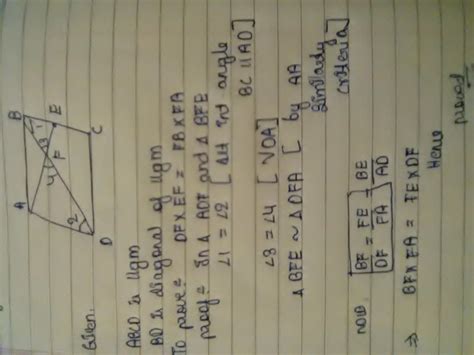 Given:
A
B
C
D
E
F
1
2
3
4
ABCD is ||gm
BD is diagonal of ||gm
To prove = DF×EF = FB×FA
proof = In Δ ADF and Δ BFE
∠1 = ∠2 [Alt int angle
BC || AD]
∠3 = ∠4 [VOA]
Δ BFE ~ Δ DFA [by AA
Similarly
criteria]
now BF/DF = FE/FA = BE/AD
⇒ BF×FA = FE×DF
Hence proved